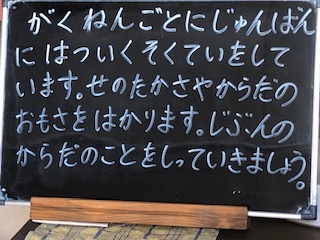 がくねんごとにじゅんばん
にはついくそくていをして
います。せのたかさやからだの
おもさをはかります。じぶんの
からだのことをしっていきましょう。